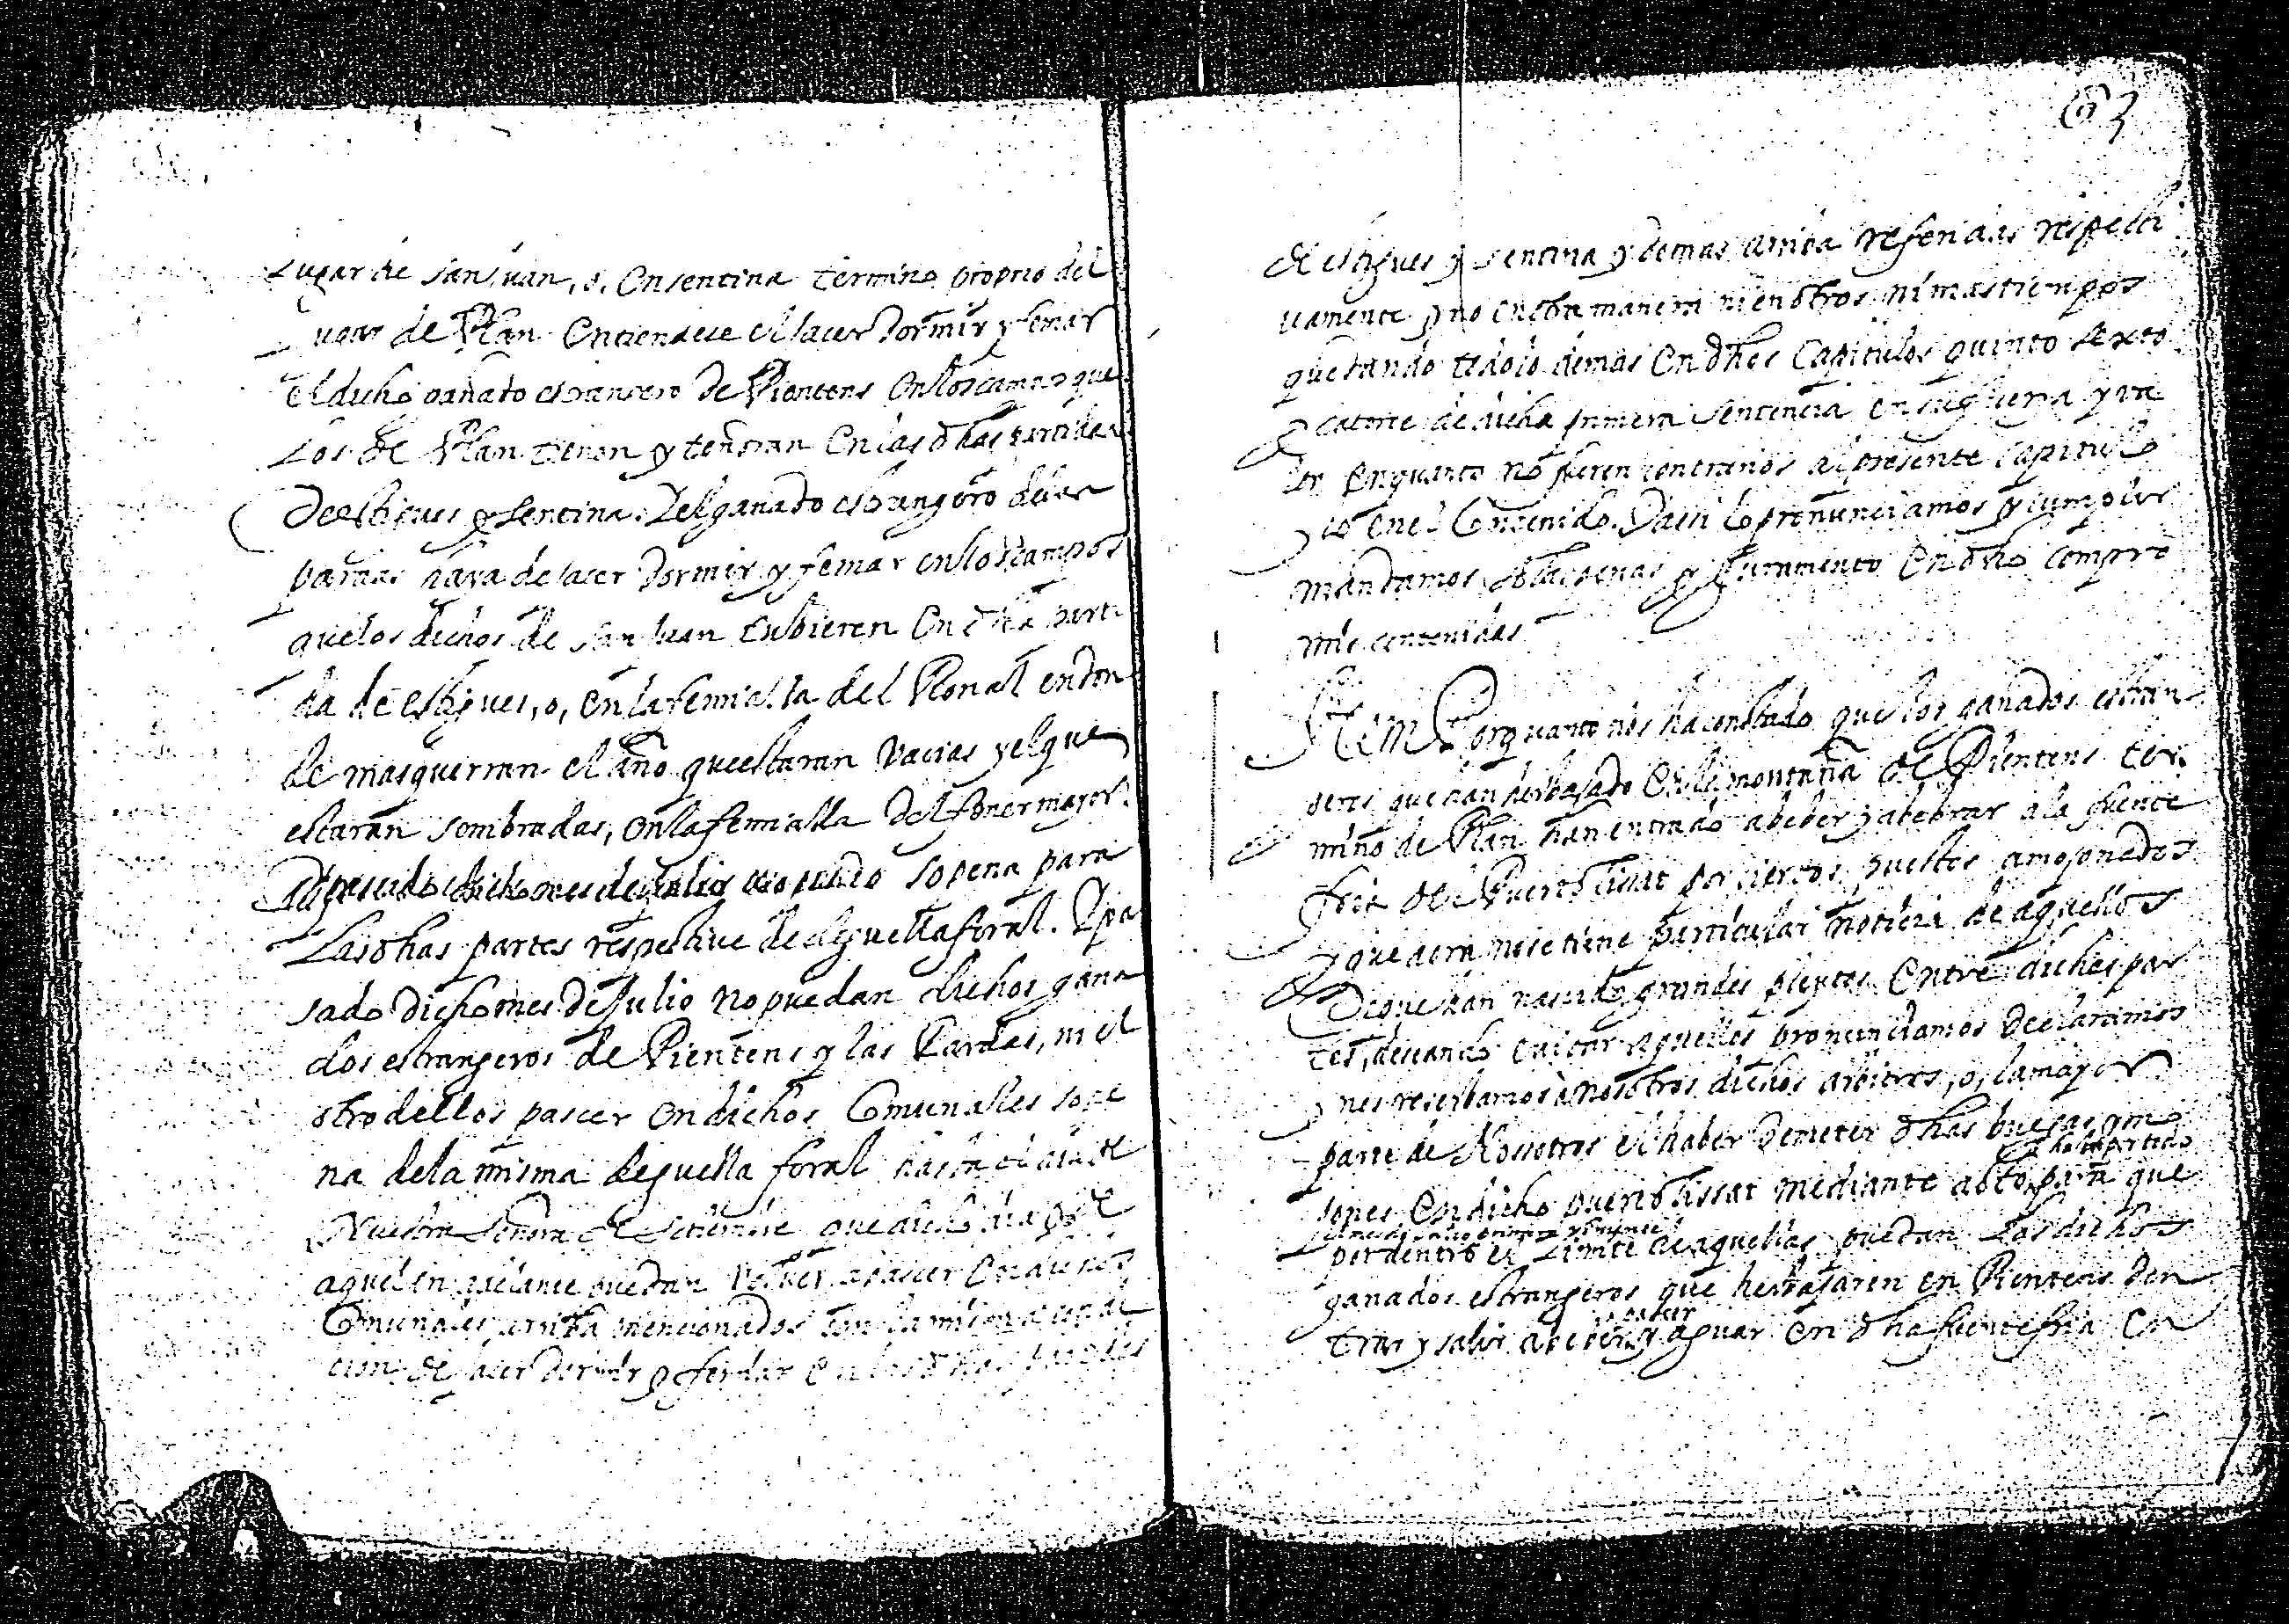 lugar de San Juan, o, en sentina termino proprio del
lugar de Plan entiendese el facer dormir y femar
el dicho ganado estrangero de Pientens en los campos que
los de Plan tienen y tendran en las dhas partidas
de estigues y sentina. Y el ganado estrangero de las
pardas haya de facer dormir y femar en los campos
que los dichos de San Juan tubieren en dha parti
da de estigues, o, en la femialla del Plonal en don
de mas querran el año que estaran vacias y el que
estaran sembradas, en la femialla del foner mayor.
sopena para
las dhas partes respective de deguella foral. Y pa
sado dicho mes de Julio no puedan dichos gana
dos estrangeros de Pientens y las Pardas, ni el
otro dellos pascer en dichos Comunales sope
na de la misma deguella foral hasta el dia de
Nuestra Señora de Setiembre que dicho dia y de
aquel en adelante puedan volver a pascer en dichos
Comunales arriba mencionados con la misma condi
cion de facer dormir y femar en las dhas partidas
de estigues y sentina y demas arriba referidas respecti
vamente y no en otra manera ni en otros ni mas tiempos
quedando todo lo demas en dhos Capitulos quinto sexto
y catorce de dicha primera sentencia en su fuerza y va
lor en quanto no fueren contrarios al presente capitulo
y lo en el Contenido. Y assi lo pronunciamos y cumplir
mandamos so las penas y Juramento en dho compro
mis contenidas
Item Por quanto nos ha constado que los ganados estran
geros que han herbajado en la montaña de Pientens ter
mino de Plan han entrado a beber y abebrar a la fuente
fria de Puertotissat por ciertos puestos amojonados
y que aora no se tiene particular noticia de aquellos
De que han nascido grandes pleytos entre dichas par
tes, deseando evitar aquellos pronunciamos declaramos
y nos reserbamos a nosotros dichos arbitros, o, la mayor
parte de Nosotros el haber de meter dhas buegas y mo
jones en dicho puertotissat mediante acto para que
por dentro el limite de aquellas puedan los dichos
ganados estrangeros que herbajaren en Pientens en
trar y salir a beber y aguar en dha fuente fria en